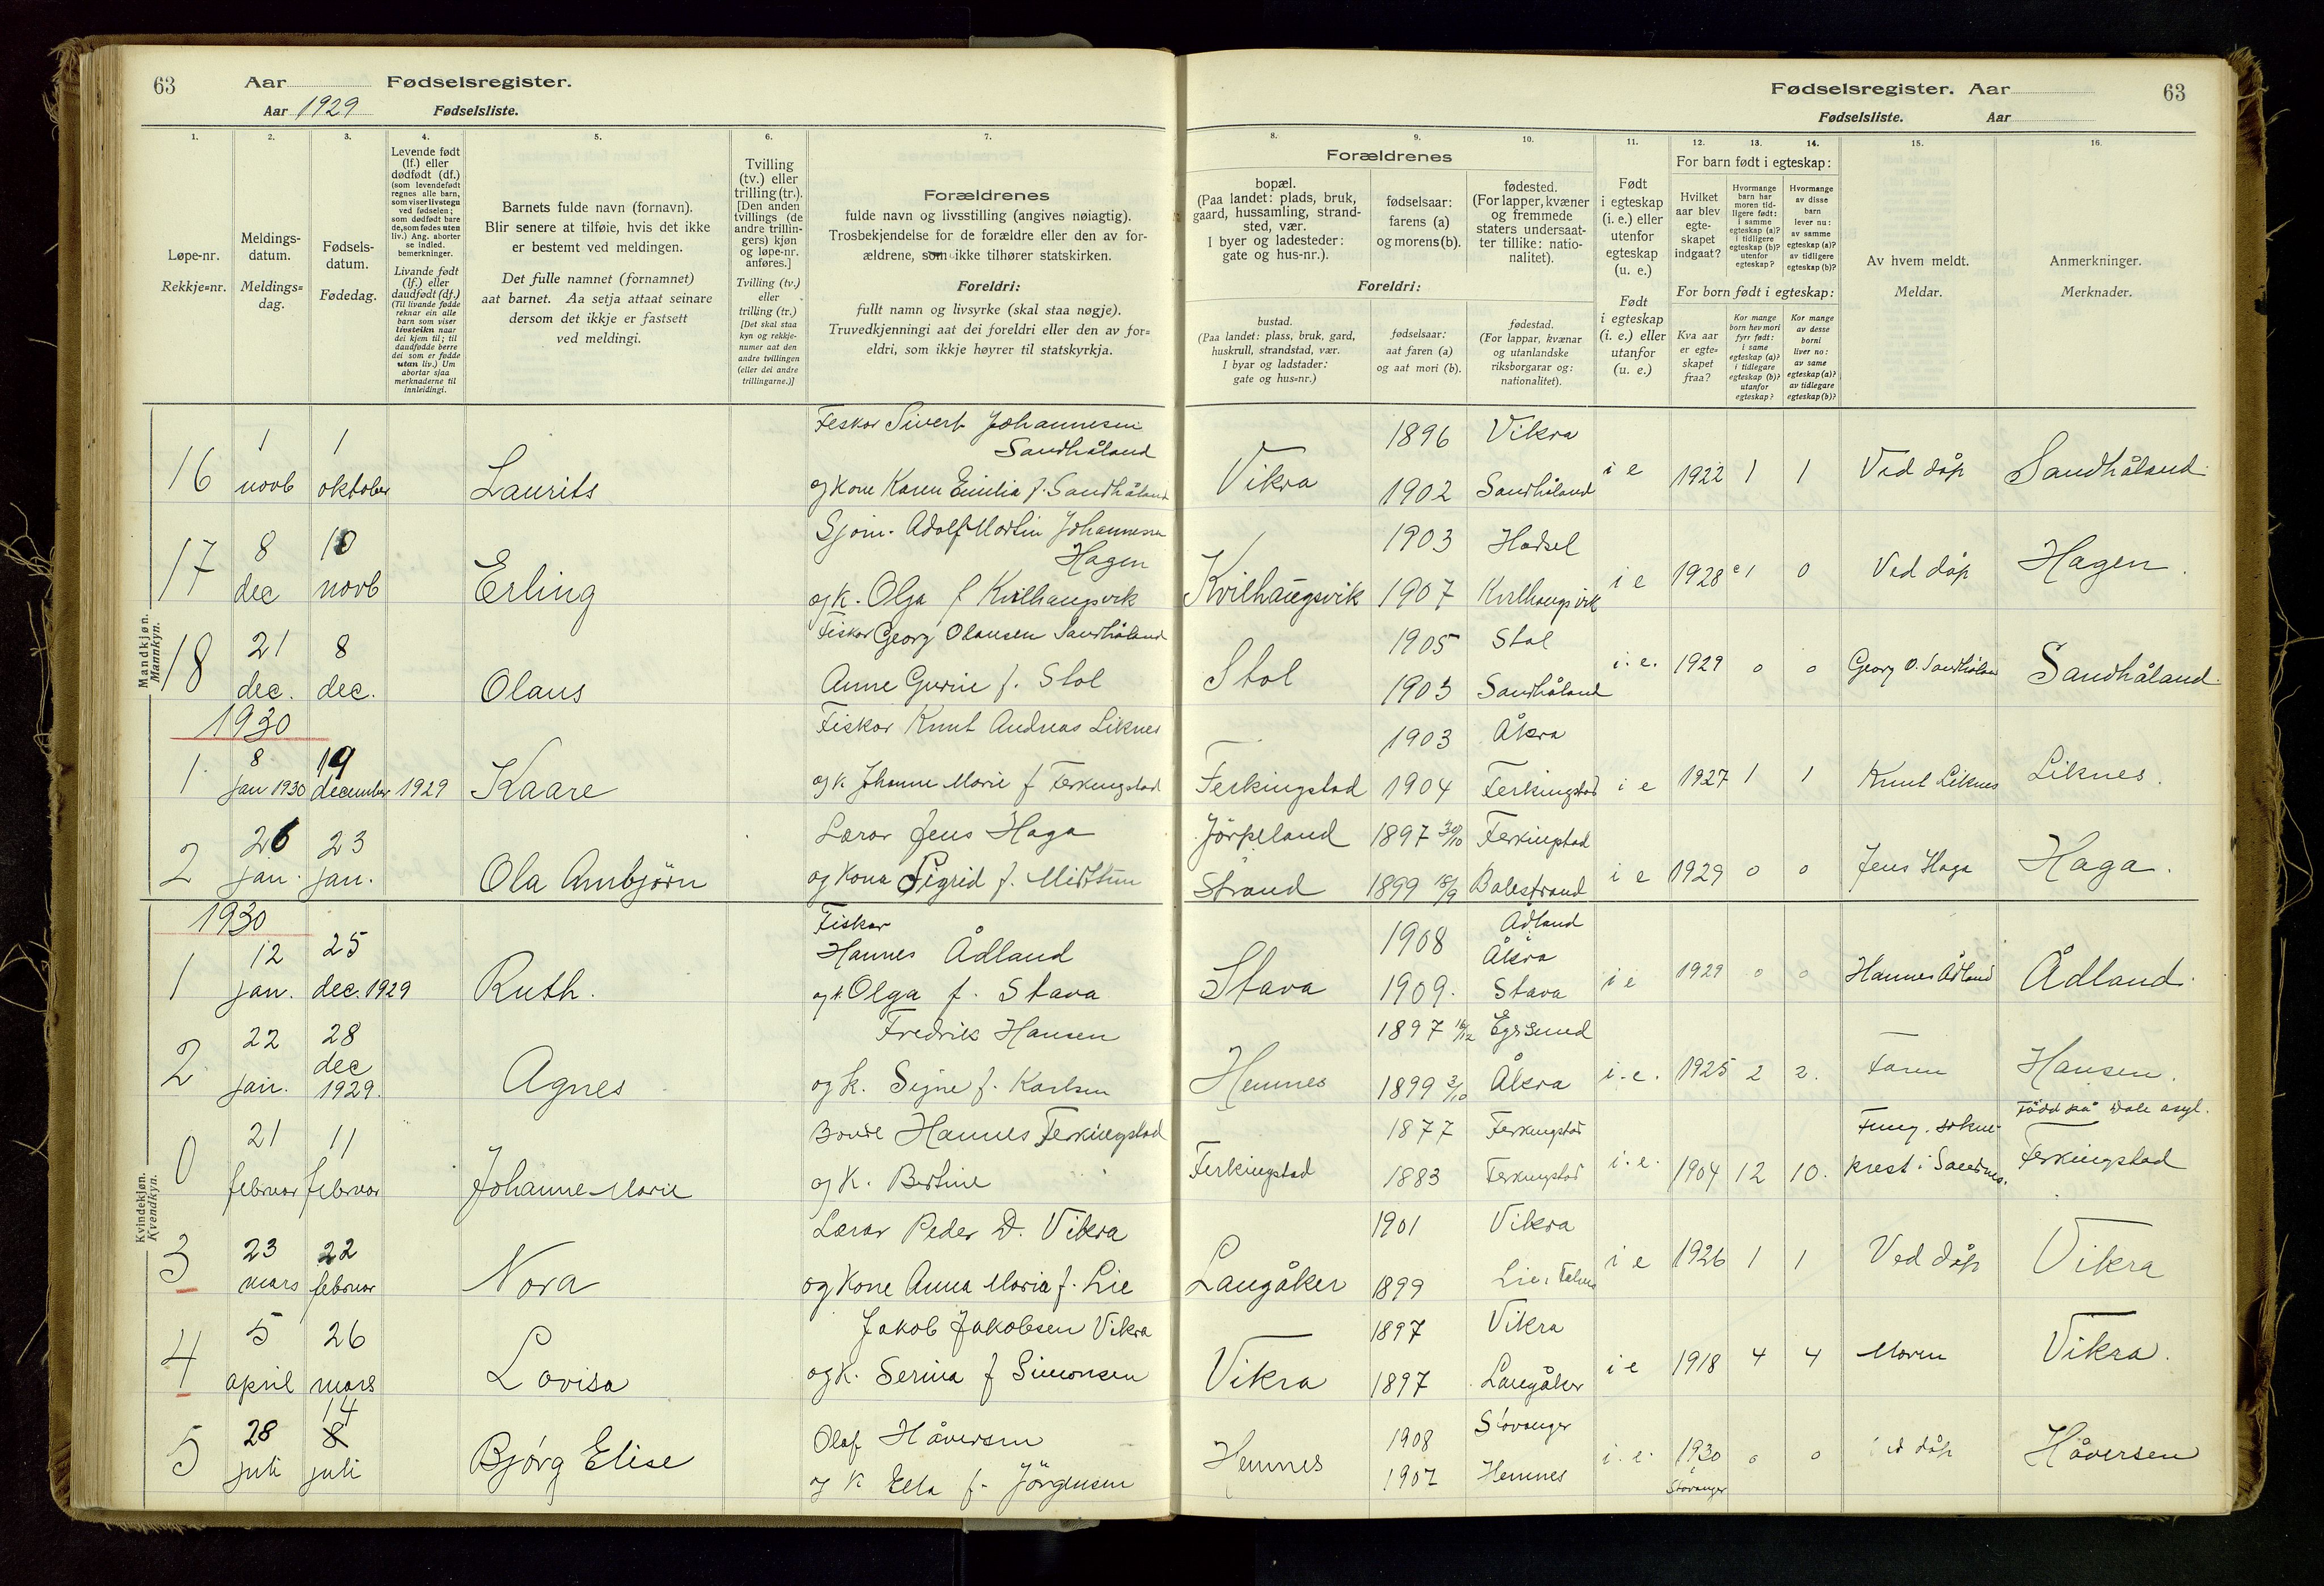 63 Aar Fødselsregister.
Aar 1929 Fødselsliste.
1. 2. 3. 4. 5. 6. 7.
Løpe-nr.
Rekkje=nr.
Meldings-
datum.
Meldings=
dag.
Fødsels-
datum.
Fødedag.
Levende født
(lf.) eller
dødfødt (df.)
(som levendefødt
regnes alle barn,
som viser livstegn
ved fødselen;
som dødfødt bare
de, som fødes uten
liv.) Ang. aborter
se indled.
bemerkninger.
Livande født
(lf.) eller
daudfødt (df.)
(Til livande fødde
reknar ein alle
barn som viser
livsteikn naar
dei kjem til; til
daudfødde berre
dei som er fødde
utan liv.) Um
abortar sjaa
merknaderne til
innleidingi.
Barnets fulde navn (fornavn).
Blir senere at tilføie, hvis det ikke
er bestemt ved meldingen.
Det fulle namnet (fornamnet)
aat barnet. Aa setja attaat seinare
dersom det ikkje er fastsett
ved meldingi.
Tvilling
(tv.) eller
trilling (tr.).
[Den anden
tvillings (de
andre trillin-
gers) kjøn
og løpe-nr.
anføres.]
Tvilling (tv.)
eller
trilling (tr.)
[Det skal staa
kyn og rekkje-
numer aat den
andre tvillingen
(eller dei andre
trillingarne.)]
Forældrenes
fulde navn og livsstilling (angives nøiagtig).
Trosbekjendelse for de forældre eller den av for-
ældrene, som ikke tilhører statskirken.
Foreldri:
fullt namn og livsyrke (skal staa nøgje).
Truvedkjenningi aat dei foreldri eller den av for=
eldri, som ikkje høyrer til statskyrkja.
Mandkjøn.
Mannkyn.
16
1
novb
1
oktober
Laurits
Feskar Sivert Johannesen
Sandhåland
og kone Karen Emilia f. Sandhåland
17
8
dec
10
novb
Erling
Sjøm. Adolf Martin Johannesen
Hagen
og K. Olga f Kvilhaugsvik
18
21
dec.
8
dec.
Olaus
Fiskar Georg Olausen Sandhåland
Anne Gurine f. Stol
1930
1
8
jan 1930
19
december 1929
Kaare
Fiskar Knut Andreas Liknes
og k Johanne Marie f Ferkingstad
2
26
jan.
23
jan.
Ola Arnbjörn
Lærar Jens Haga
og Kona Sigrid f. Midttun
Kvindekjøn.
Kvendkyn.
1930
1
12
jan.
25
dec. 1929
Ruth.
Fiskar
Hannes Ådland
og k. Olga f. Stava
2
22
jan.
28
dec
1929.
Agnes
Fredrik Hansen
og k. Signe f. Karlsen
0
21
februar
11
februar
Johanne Marie
Bonde Hannes Ferkingstad
og K. Bertine
3
23
mars
22
februar
Nora
Lærar Peder D. Vikra
og Kone Anna Maria f. Lie
4
5
april
26
mars
Lovisa
Jakob Jakobsen Vikra
og K. Serina f Simonsen
5
28
juli
14
8
juli
Bjørg Elise
Olaf Håversen
og K Ella f. Jörgensen
Fødselsregister. Aar 63
Fødselsliste. Aar
8. 9. 10. 11. 12. 13. 14. 15. 16.
Forældrenes
bopæl.
(Paa landet: plads, bruk,
gaard, hussamling, strand-
sted, vær.
I byer og ladesteder:
gate og hus-nr.).
fødselsaar:
farens (a)
og morens (b).
fødested.
(For lapper, kvæner
og fremmede
staters undersaat-
ter tillike: natio-
nalitet).
Foreldri:
bustad.
(Paa landet: plass, bruk, gard,
huskrull, strandstad, vær.
I byar og ladstader:
gate og hus=nr.)
fødselsaar:
aat faren (a)
og aat mori (b).
fødestad.
(For lappar, kvænar
og utanlandske
riksborgarar og:
nationalitet).
Født
i egteskap
(i. e.) eller
utenfor
egteskap
(u. e.)
Født
i egteskap
(i. e.) eller
utanfor
(u. e.)
For barn født i egteskap:
Hvilket
aar blev
egte-
skapet
indgaat?
Hvormange
barn har
moren tid-
ligere født:
i samme
egteskap (a)?
i tidligere
egteskap (b)?
utenfor
egteskap?
Hvormange
av disse
barn
lever nu:
av samme
egteskap (a)?
av tidligere
egteskap (b)?
For born født i egteskap:
Kva aar
er egte=
skapet
fraa?
Kor mange
born hev mori
fyrr født:
i same
egteskap (a)?
i tidlegare
egteskap (b)?
utanfor
egteskap?
Kor mange
av desse
borni
liver no:
av same
egteskap (a)?
av tidlegare
egteskap (b)?
Av hvem meldt.
Meldar.
Anmerkninger.
Merknader.
Vikra
1896 Vikra
1902 Sandhåland
i e 1922 1 1 Ved dåp Sandhåland.
Kvilhaugsvik
1903 Hadsel
1907 Kvilhaugsvik
i e 1928 1 0 Ved dåp Hagen.
Stol
1905 Stol
1903 Sandhåland
i. e. 1929 0 0 Georg O. Sandhåland Sandhåland.
Ferkingstad
1903 Åkra
1904 Ferkingstad
i e 1927 1 1 Knut Liknes Liknes.
Jörpeland
Strand
1897 30/10 Ferkingstad
1899 18/9 Balestrand
i e 1929 0 0 Jens Haga Haga.
Stava
1908 Ådland
Åkra
1909. Stava
i e 1929 0 0 Hannes Ådland Ådland.
Hemnes
1897 Egersund
1899 3/10 Åkra
i. e. 1925 2 2. Faren Hansen.
Ferkingstad
1877 Ferkingstad
1883 Ferkingstad
i. e. 1904 12 10.
Fung. sokne-
prest i Sandnes.
Född på Dale asyl.
Ferkingstad
Langåker
1901 Vikra
1899 Lie,
i e 1926 1 1 Ved dåp Vikra
Vikra
1897 Vikra
1897 Langåker
i e 1918 4 4 Moren Vikra.
Hemnes
1908 Stavanger
1907 Hemnes
i. e. 1930 0 0 Ved dåp Håversen
Stavanger